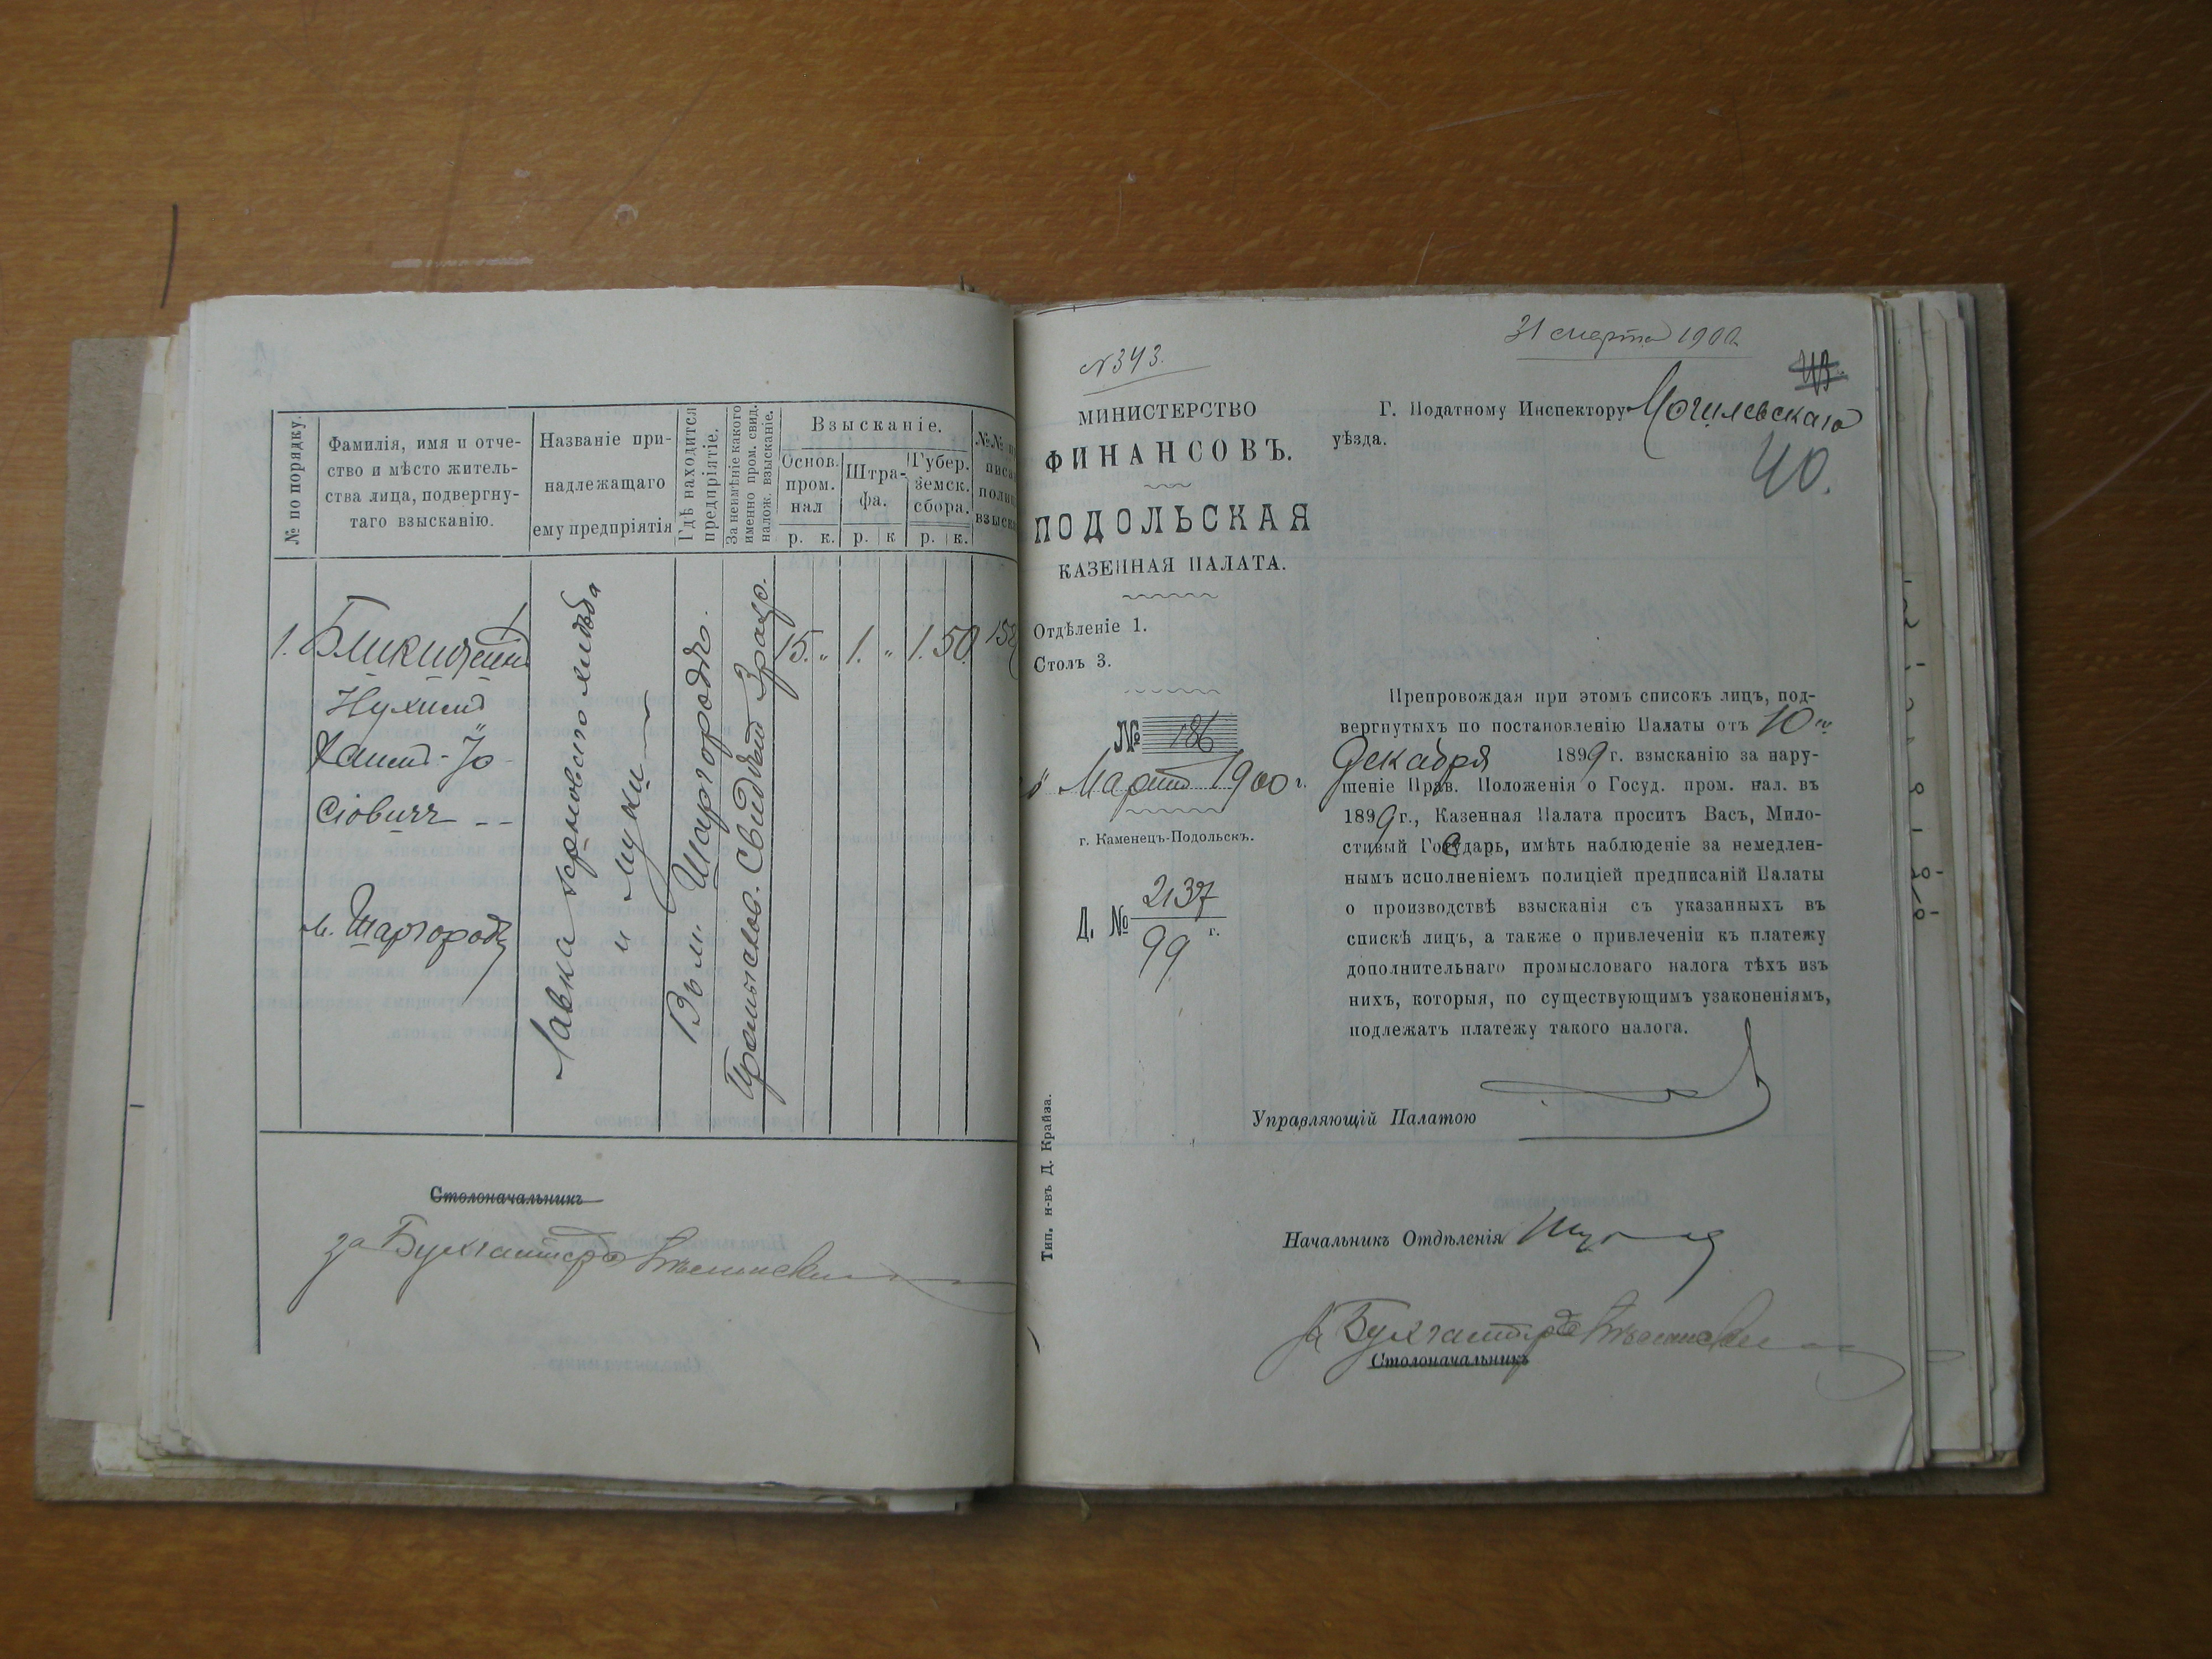 № по порядку.
Фамилія, имя и отче-
ство и мѣсто житель-
ства лица, подвергну-
таго взысканію.
Названіе при-
надлежащаго
ему предпріятія
Гдѣ находится
предпріятіе.
За неимѣніе какого
именно пром. свид.
налож. взысканіе.
Взысканіе.
Основ.
пром.
нал
р. к.
Штра-
фа.
р. к
Губер.
земск.
сбора.
р. к.
1.
Нухим
Хаим-Іо-
сіовичъ --
м. Шаргородъ
Лавка зернового хлѣба
и муки
Въ м. Шаргородѣ.
Промыслов. Свидѣт 3 разр.
15. "
1. "
1. 50.
Столоначальникъ
за Бухгалтера
31 марта 1900
N 343.
МИНИСТЕРСТВО
ФИНАНСОВЪ.
ПОДОЛЬСКАЯ
КАЗЕННАЯ ПАЛАТА.
Отдѣленіе 1.
Столъ 3.
№ 186
Марта 1900 г.
г. Каменецъ-Подольскъ.
Д. № 2137
99 г.
Г. Податному Инспектору Могилевскаго
уѣзда.
40.
Препровождая при этомъ списокъ лицъ, под-
вергнутыхъ по постановленію Палаты отъ 10го
Декабря 1899 г. взысканію за нару-
шеніе Прав. Положенія о Госуд. пром. нал. въ
1899 г., Казенная Палата проситъ Васъ, Мило-
стивый Государь, имѣть наблюденіе за немедлен-
нымъ исполненіемъ полиціей предписаній Палаты
о производствѣ взысканія съ указанныхъ въ
спискѣ лицъ, а также о привлеченіи къ платежу
дополнительнаго промысловаго налога тѣхъ изъ
нихъ, которыя, по существующимъ узаконеніямъ,
подлежатъ платежу такого налога.
Управляющій Палатою
Начальникъ Отдѣленія
За Бухгалтера
Столоначальникъ
Тип. н-въ Д. Крайза.